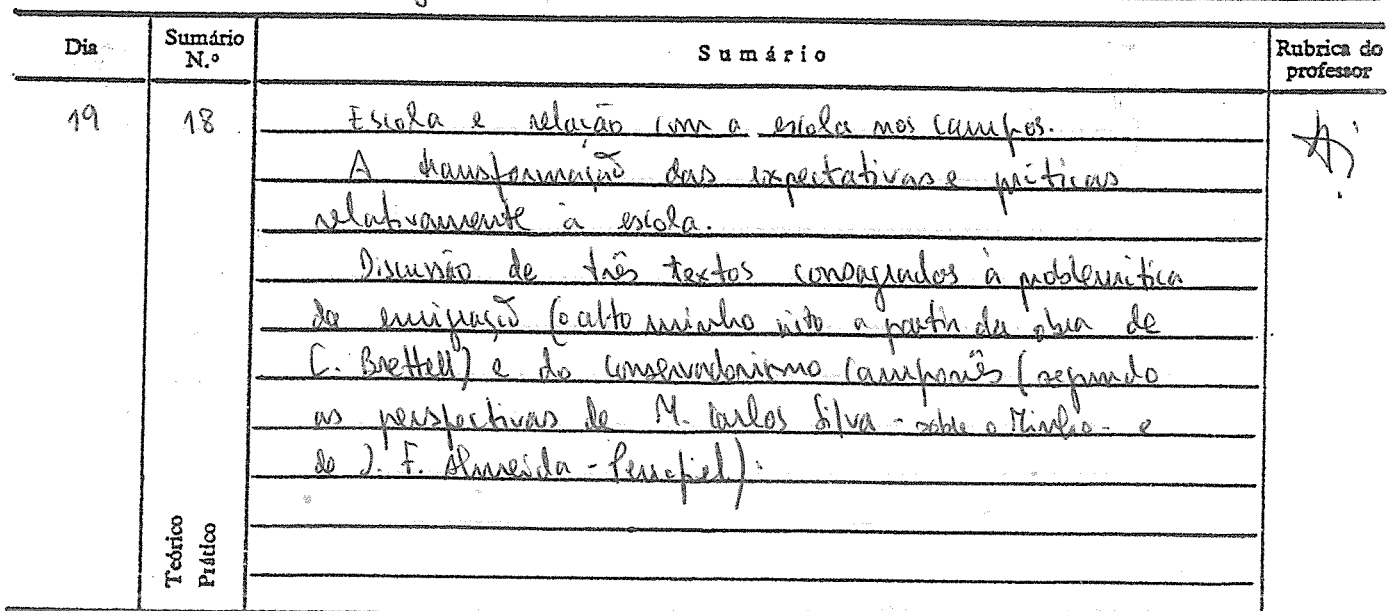 Dia Sumário N.º Sumário Rubrica do professor
19 18 Escola e relação com a escola nos campos.
A transformação das expectativas e práticas
relativamente à escola.
Discussão de três textos consagrados à problemática
da emigração (o alto minho visto a partir da obra de
C. Brettell) e do conservadorismo camponês (segundo
as perspectivas de M. Carlos Silva - sobre o Minho - e
de J. F. Almeida - Penafiel).
Teórico
Prático